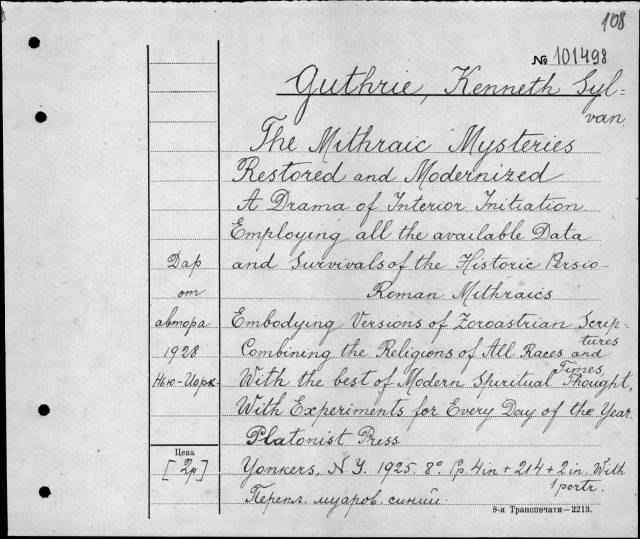 108
№ 101498
Guthrie, Kenneth Syl=
van
The Mithraic Mysteries
Restored and Modernized
A Drama of Interior Initiation
Employing all the available Data
and Survivals of the Historic Persio-
Roman Mithraics
Embodying Versions of Zoroastrian Scrip-
tures
Combining the Religions of All Races and
Times,
With the best of Modern Spiritual Thought,
With Experiments for Every Day of the Year.
Platonist Press.
Yonkers, N.Y. 1925. 8° Pp. 4 in + 214 + 2 in. With
1 portr.
Перепл. муаров. синий.
Дар
от
автора
1928
Нью-Иорк.
Цена
[2р]
8-я Транспечати—2213.